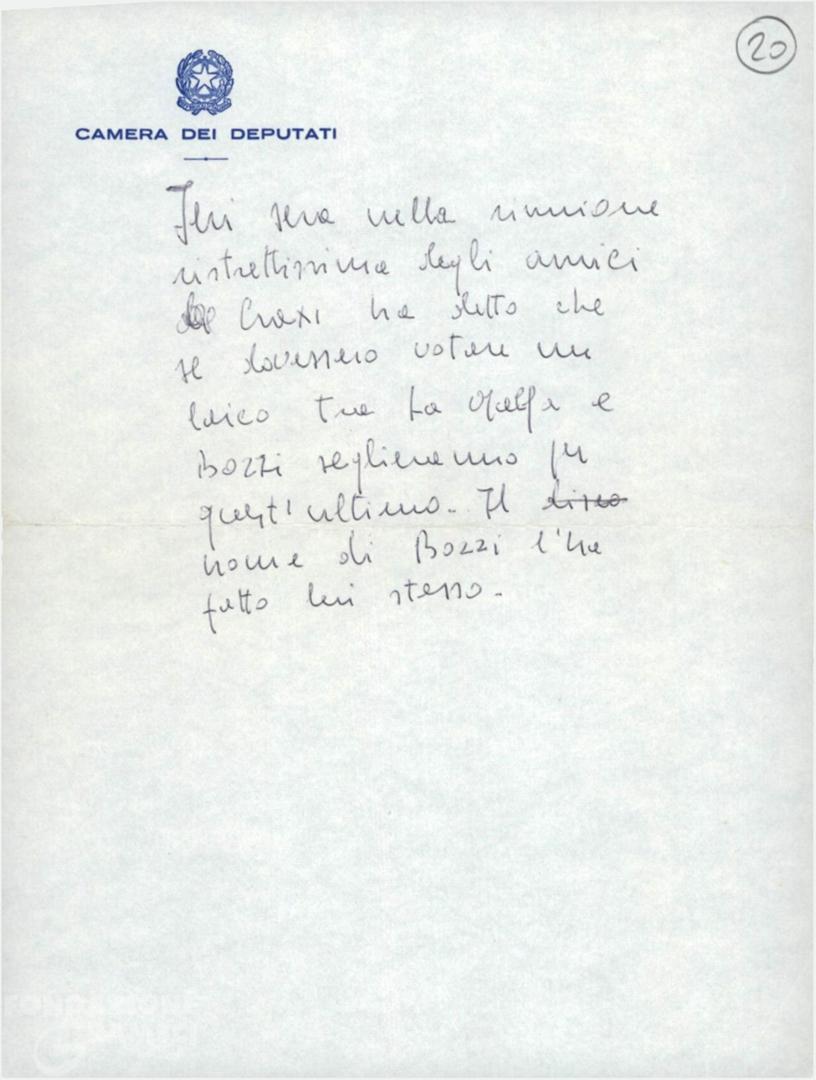 20
CAMERA DEI DEPUTATI
Ieri sera nella riunione
ristrettissima degli amici
Craxi ha detto che
se dovessero votare un
laico tra La Malfa e
Bozzi sceglieranno per
quest'ultimo. Il
nome di Bozzi l'ha
fatto lui stesso.
FONDAZIONE